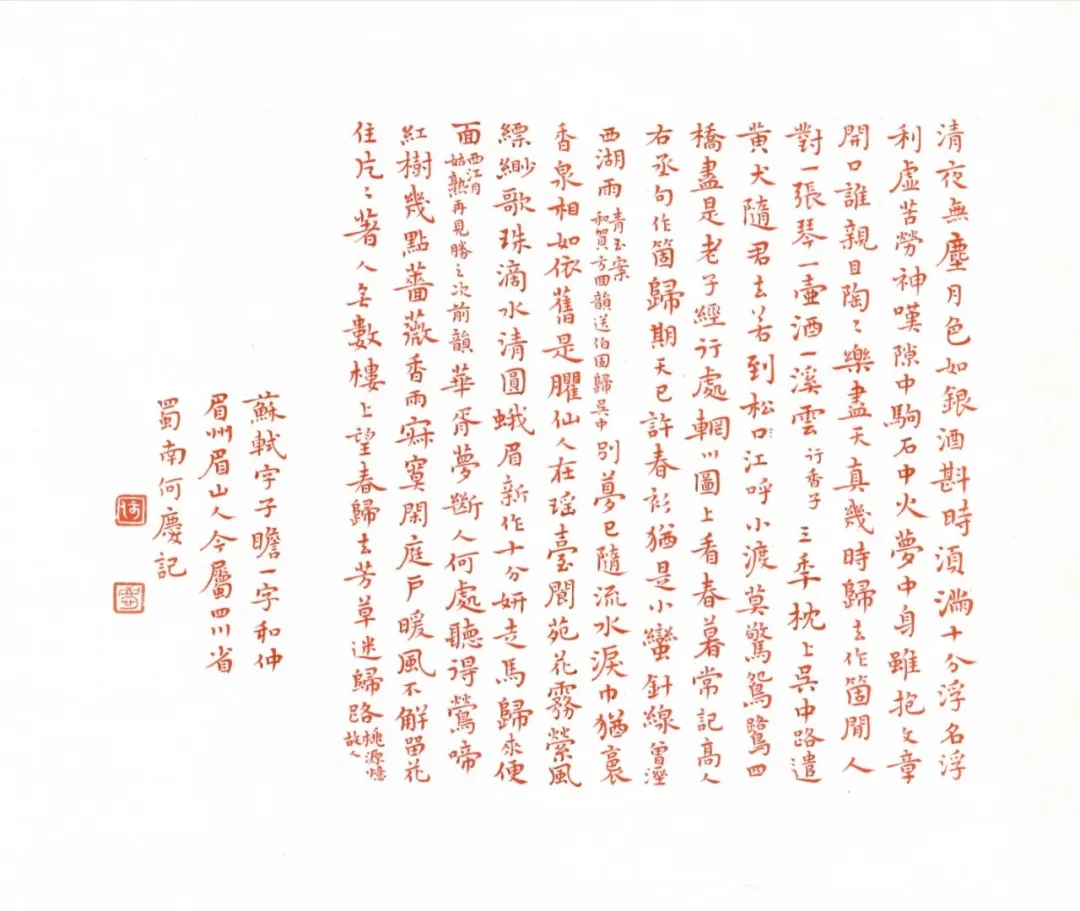 清夜無塵月色如銀酒斟時須滿十分浮名浮
利虛苦勞神嘆隙中駒石中火夢中身雖抱文章
開口誰親且陶〻樂盡天真幾時歸去作箇閒人
對一張琴一壺酒一溪雲 行香子 三年枕上吳中路遣
黃犬隨君去若到松江呼小渡莫驚鴛鷺四
橋盡是老子經行處輞川圖上看春暮常記高人
右丞句作箇歸期天已許春衫猶是小蠻針線曾溼
西湖雨 青玉案 和賀方回韻送伯固歸吳中 別夢已隨流水淚巾猶裛
香泉相如依舊是臞仙人在瑤臺閬苑花霧縈風
縹緲歌珠滴水清圓蛾眉新作十分妍走馬歸來便
面 西江月 姑熟再見勝之次前韻 華胥夢斷人何處聽得鶯啼
紅樹幾點薔薇香雨寂寞閑庭戶暖風不解留花
住片〻著人無數樓上望春歸去芳草迷歸路 桃源憶故人
蘇軾字子瞻一字和仲
眉州眉山人今屬四川省
蜀南何慶記
何